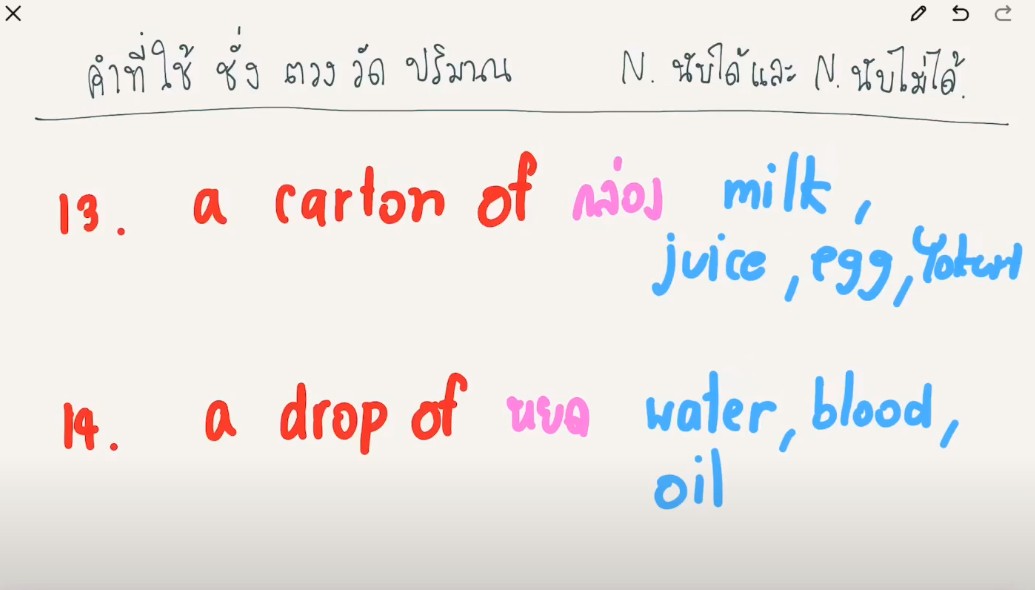 คำที่ใช้ ชั่ง ตวง วัด ปริมาณ N. นับได้ และ N. นับไม่ได้.
13. a carton of กล่อง milk,
juice, egg, Yokurt
14. a drop of หยด water, blood,
oil